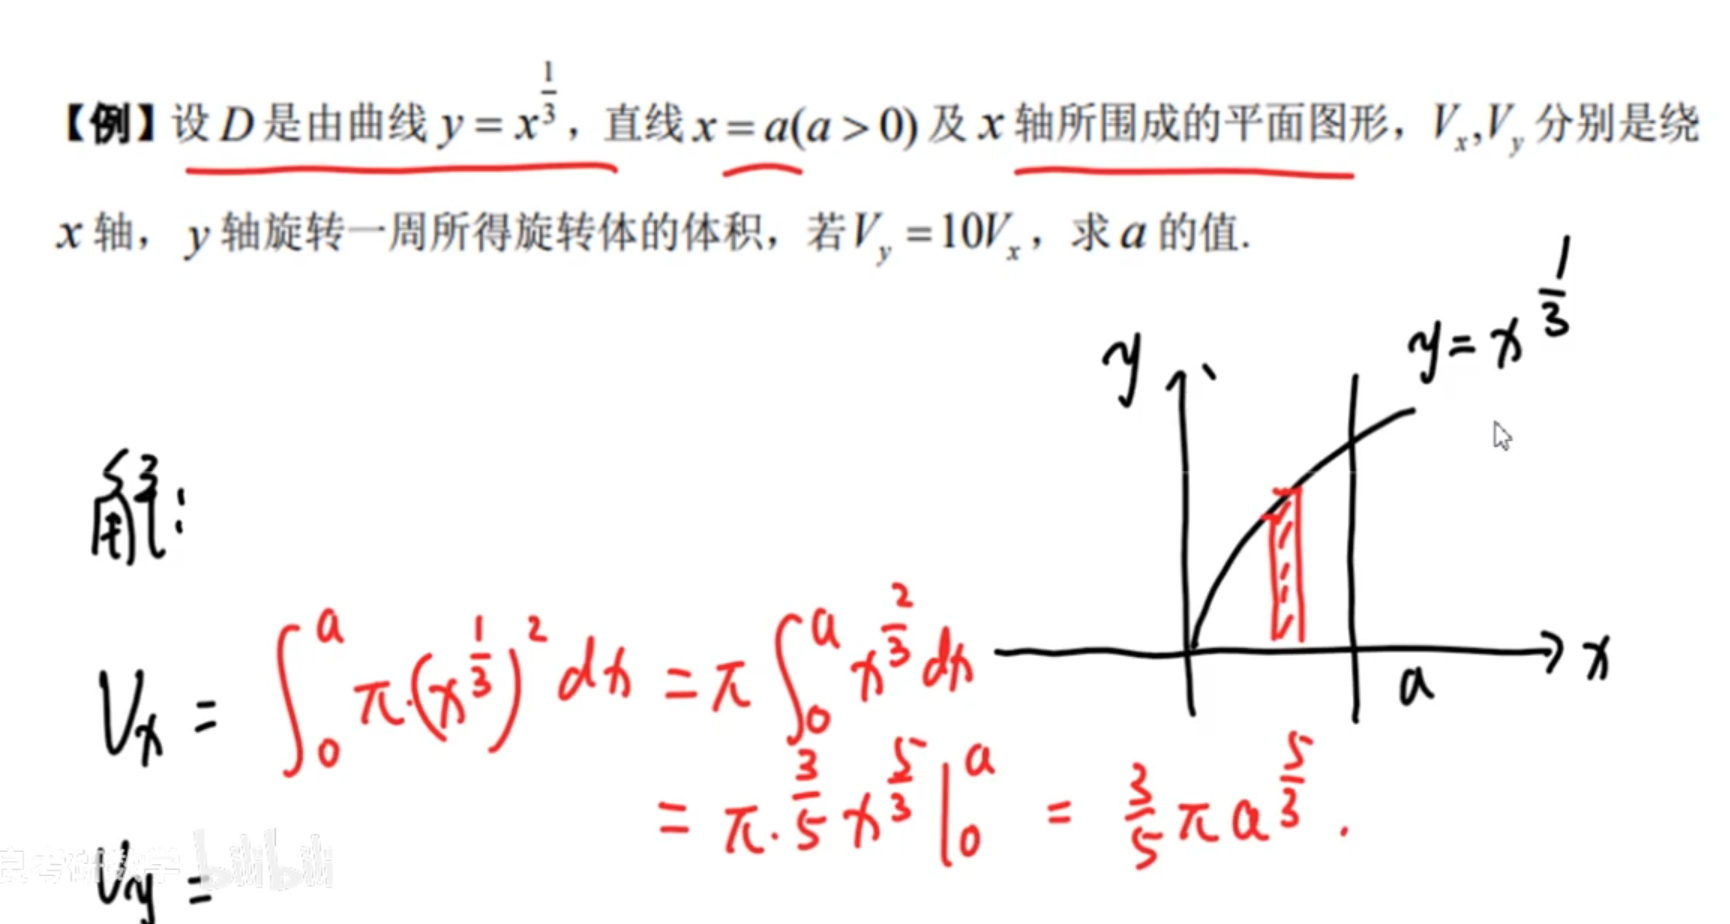 【例】设 D 是由曲线 y = x^{1/3}，直线 x = a(a > 0) 及 x 轴所围成的平面图形，V_x,V_y 分别是绕
x 轴，y 轴旋转一周所得旋转体的体积，若 V_y = 10V_x，求 a 的值.
y
y = x^{1/3}
解:
V_x = ∫_0^a π·(x^{1/3})^2 dx = π ∫_0^a x^{2/3} dx
x
a
= π·3/5 x^{5/3} |_0^a = 3/5 π a^{5/3}.
考研 学 bilibili
V_y =